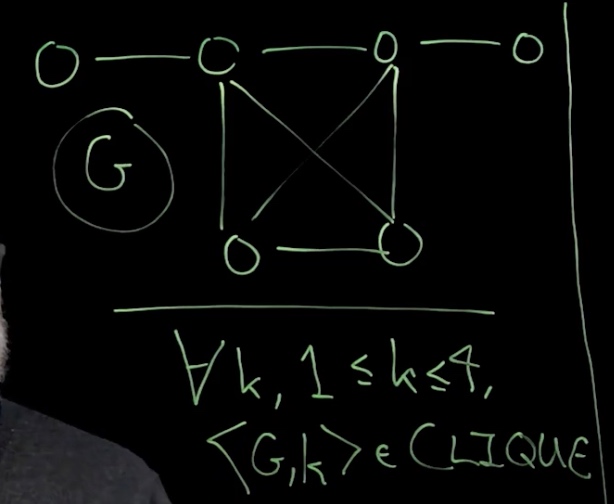 G
∀k, 1 ≤ k ≤ 4,
⟨G,k⟩ ∈ CLIQUE